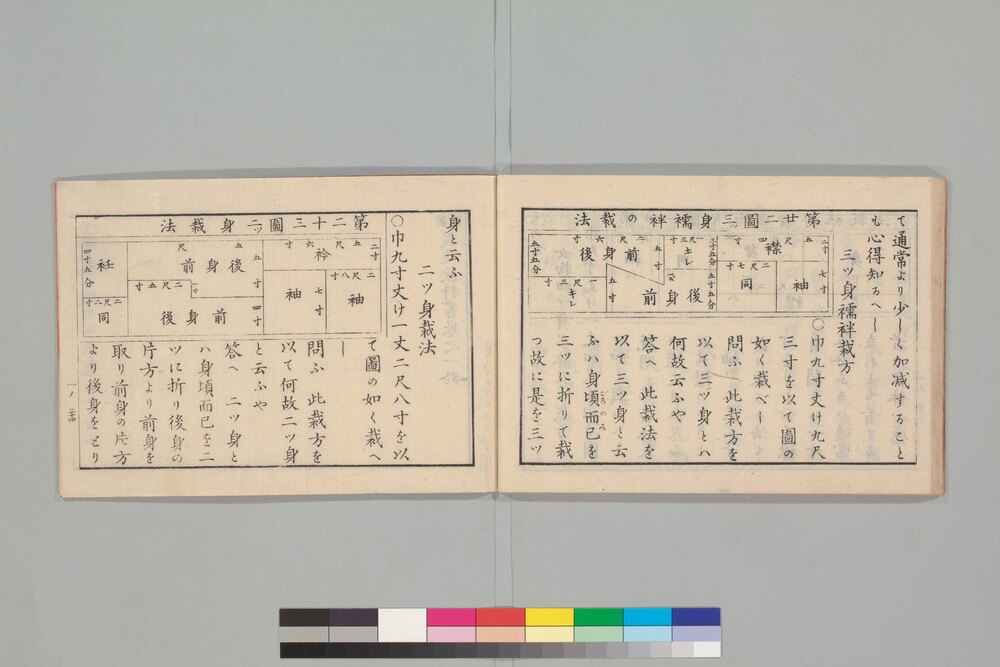 て通常より少しく加減すること
も心得知るへし
三ツ身襦袢裁方
〇巾九寸丈け九尺
三寸を以て圖の
如く裁べし
問ふ 此裁方を
以て三ツ身とハ
何故云ふや
答へ 此裁法を
以て三ツ身と云
ふハ身頃而已を
三ツに折りて裁
つ故に是を三ツ
第廿二圖三ツ身襦袢の裁法
二寸
五尺四寸
襟
七寸
袖
二尺七寸
同
三寸五分
五寸五分
二尺三寸
キレ
後身
五尺六寸
五寸
前身
五寸
前
後
二尺三寸
キレ
五寸五分
身と云ふ
二ツ身裁法
〇巾九寸丈け一丈二尺八寸を以
て圖の如く裁へ
し
問ふ 此裁方を
以て何故二ツ身
と云ふや
答へ 二ツ身と
ハ身頃而已を二
ツに折り後身の
片方より前身を
取り前身の片方
より後身をとり
第二十三圖二ツ身裁法
二寸
五尺六寸
衿
二尺八寸
袖
七寸
袖
五尺
五寸
四寸
後身前
一寸
二尺五寸
前身後
衽
四寸五分
二尺二寸
同
一ノ二十四